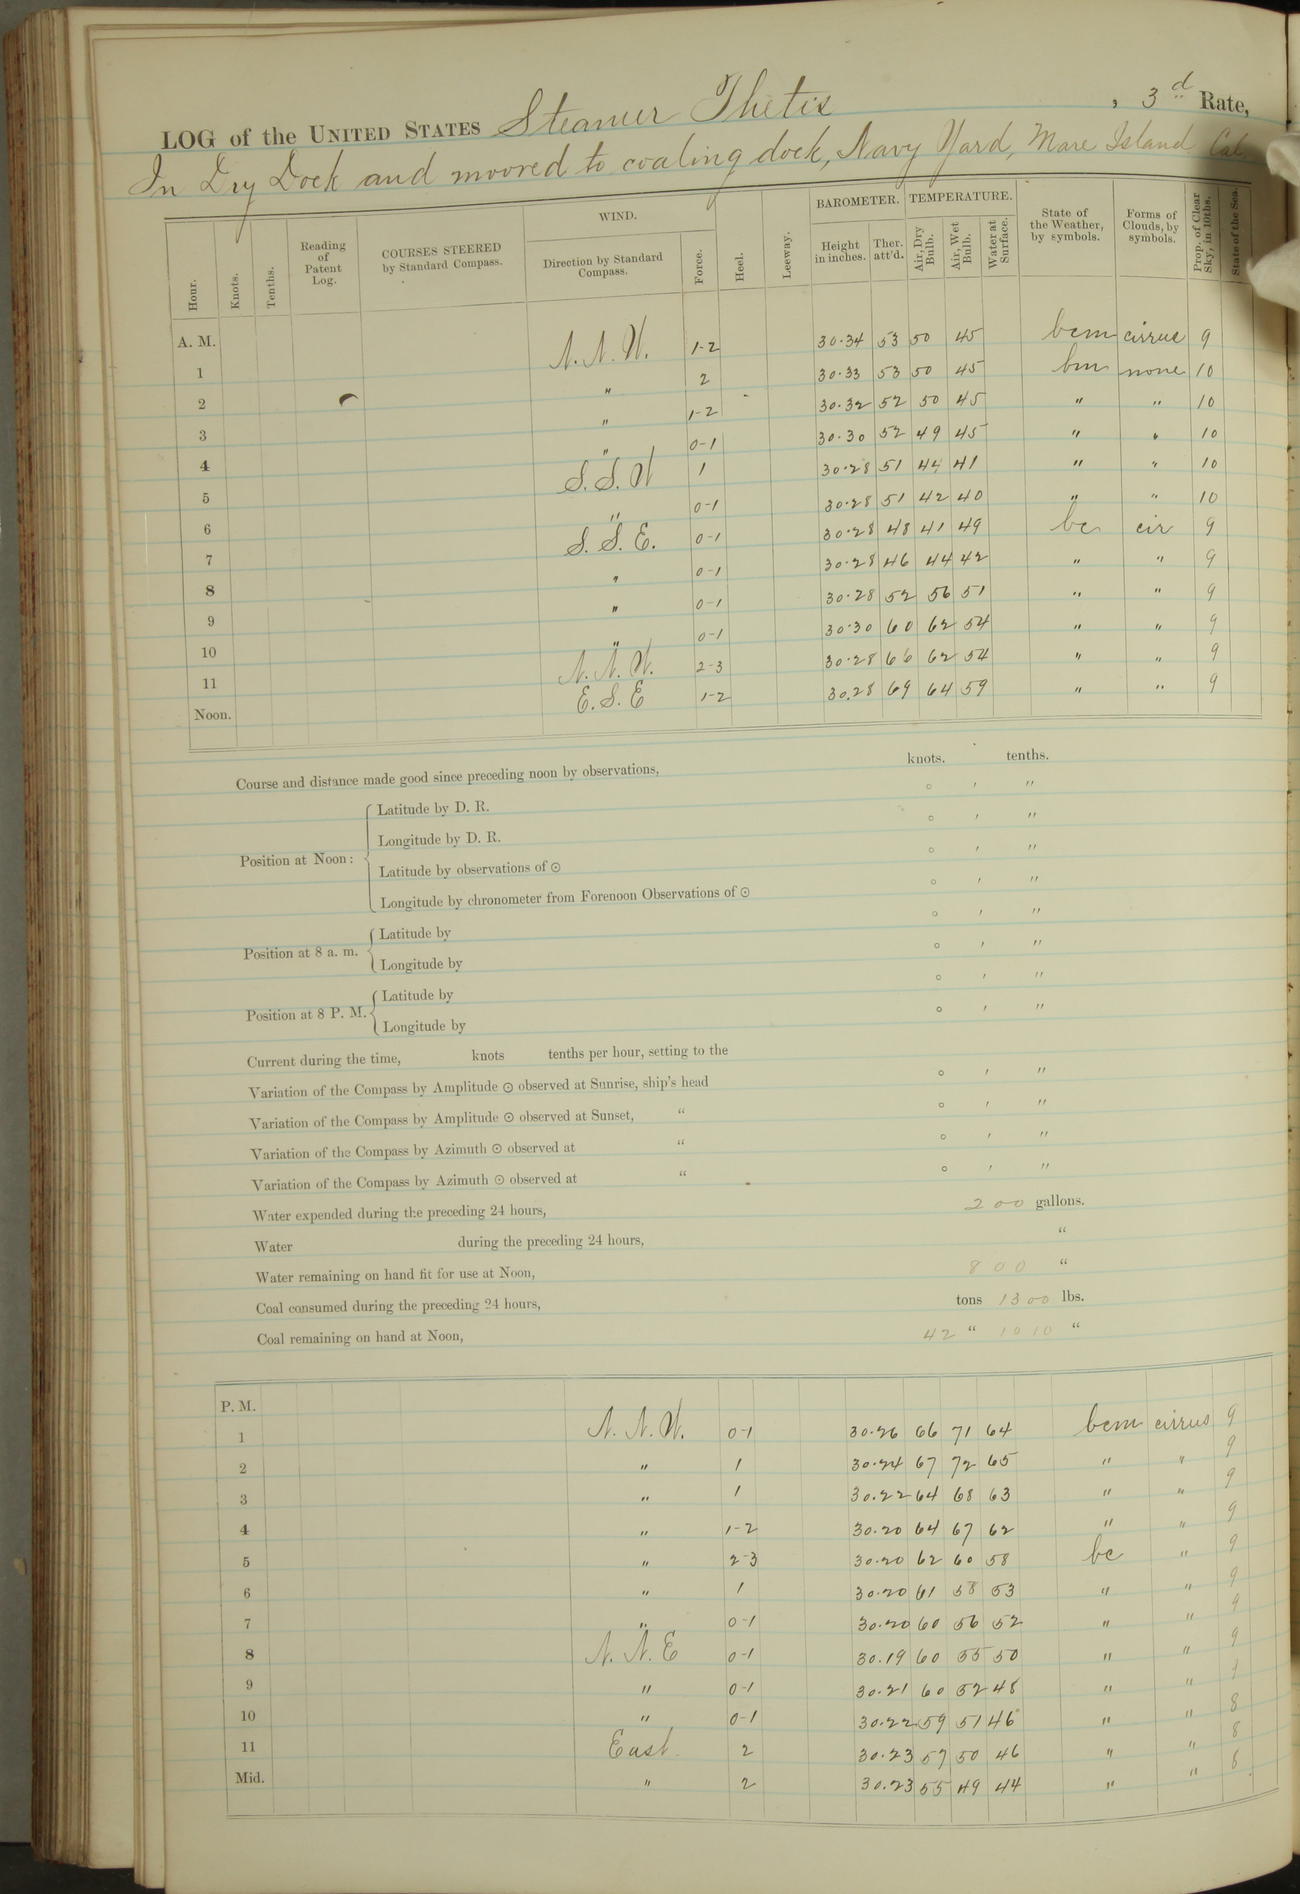 LOG of the UNITED STATES Steamer Thetis , 3d Rate,
In Dry Dock and moored to coaling dock, Navy Yard, Mare Island Cal.
Hour. Knots. Tenths. Reading of Patent Log. COURSES STEERED by Standard Compass. WIND. Direction by Standard Compass. Force. Heel. Leeway. BAROMETER. Height in inches. Ther. att'd. TEMPERATURE. Air, Dry Bulb. Air, Wet Bulb. Water at Surface. State of the Weather, by symbols. Forms of Clouds, by symbols. Prop. of Clear Sky, in 10ths. State of the Sea.
A. M.
1 N. N. W. 1-2 30.34 53 50 45 bcm cirrus 9
2 " 2 30.33 53 50 45 bm none 10
3 " 1-2 30.32 52 50 45 " " 10
4 " 0-1 30.30 52 49 45 " " 10
5 S. S. W 1 30.28 51 44 41 " " 10
6 " 0-1 30.28 51 42 40 " " 10
7 S. S. E. 0-1 30.28 48 41 49 bc cir 9
8 " 0-1 30.28 46 44 42 " " 9
9 " 0-1 30.28 52 56 51 " " 9
10 " 0-1 30.30 60 62 54 " " 9
11 N. N. W. 2-3 30.28 66 62 54 " " 9
Noon. E. S. E 1-2 30.28 69 64 59 " " 9
Course and distance made good since preceding noon by observations, knots. tenths.
Position at Noon: Latitude by D. R. ° ' "
Longitude by D. R. ° ' "
Latitude by observations of ⊙ ° ' "
Longitude by chronometer from Forenoon Observations of ⊙ ° ' "
Position at 8 a. m. Latitude by ° ' "
Longitude by ° ' "
Position at 8 P. M. Latitude by ° ' "
Longitude by ° ' "
Current during the time, knots tenths per hour, setting to the
Variation of the Compass by Amplitude ⊙ observed at Sunrise, ship's head ° ' "
Variation of the Compass by Amplitude ⊙ observed at Sunset, " ° ' "
Variation of the Compass by Azimuth ⊙ observed at " ° ' "
Variation of the Compass by Azimuth ⊙ observed at " ° ' "
Water expended during the preceding 24 hours, 200 gallons.
Water during the preceding 24 hours, "
Water remaining on hand fit for use at Noon, 800 "
Coal consumed during the preceding 24 hours, tons 1300 lbs.
Coal remaining on hand at Noon, 42 " 1010 "
P. M.
1 N. N. W. 0-1 30.26 66 71 64 bcm cirrus 9
2 " 1 30.24 67 72 65 " " 9
3 " 1 30.22 64 68 63 " " 9
4 " 1-2 30.20 64 67 62 " " 9
5 " 2-3 30.20 62 60 58 bc " 9
6 " 1 30.20 61 58 53 " " 9
7 " 0-1 30.20 60 56 52 " " 9
8 N. N. E 0-1 30.19 60 55 50 " " 9
9 " 0-1 30.21 60 52 48 " "
10 " 0-1 30.22 59 51 46 " " 8
11 East. 2 30.23 57 50 46 " " 8
Mid. " 2 30.23 55 49 44 " " 8